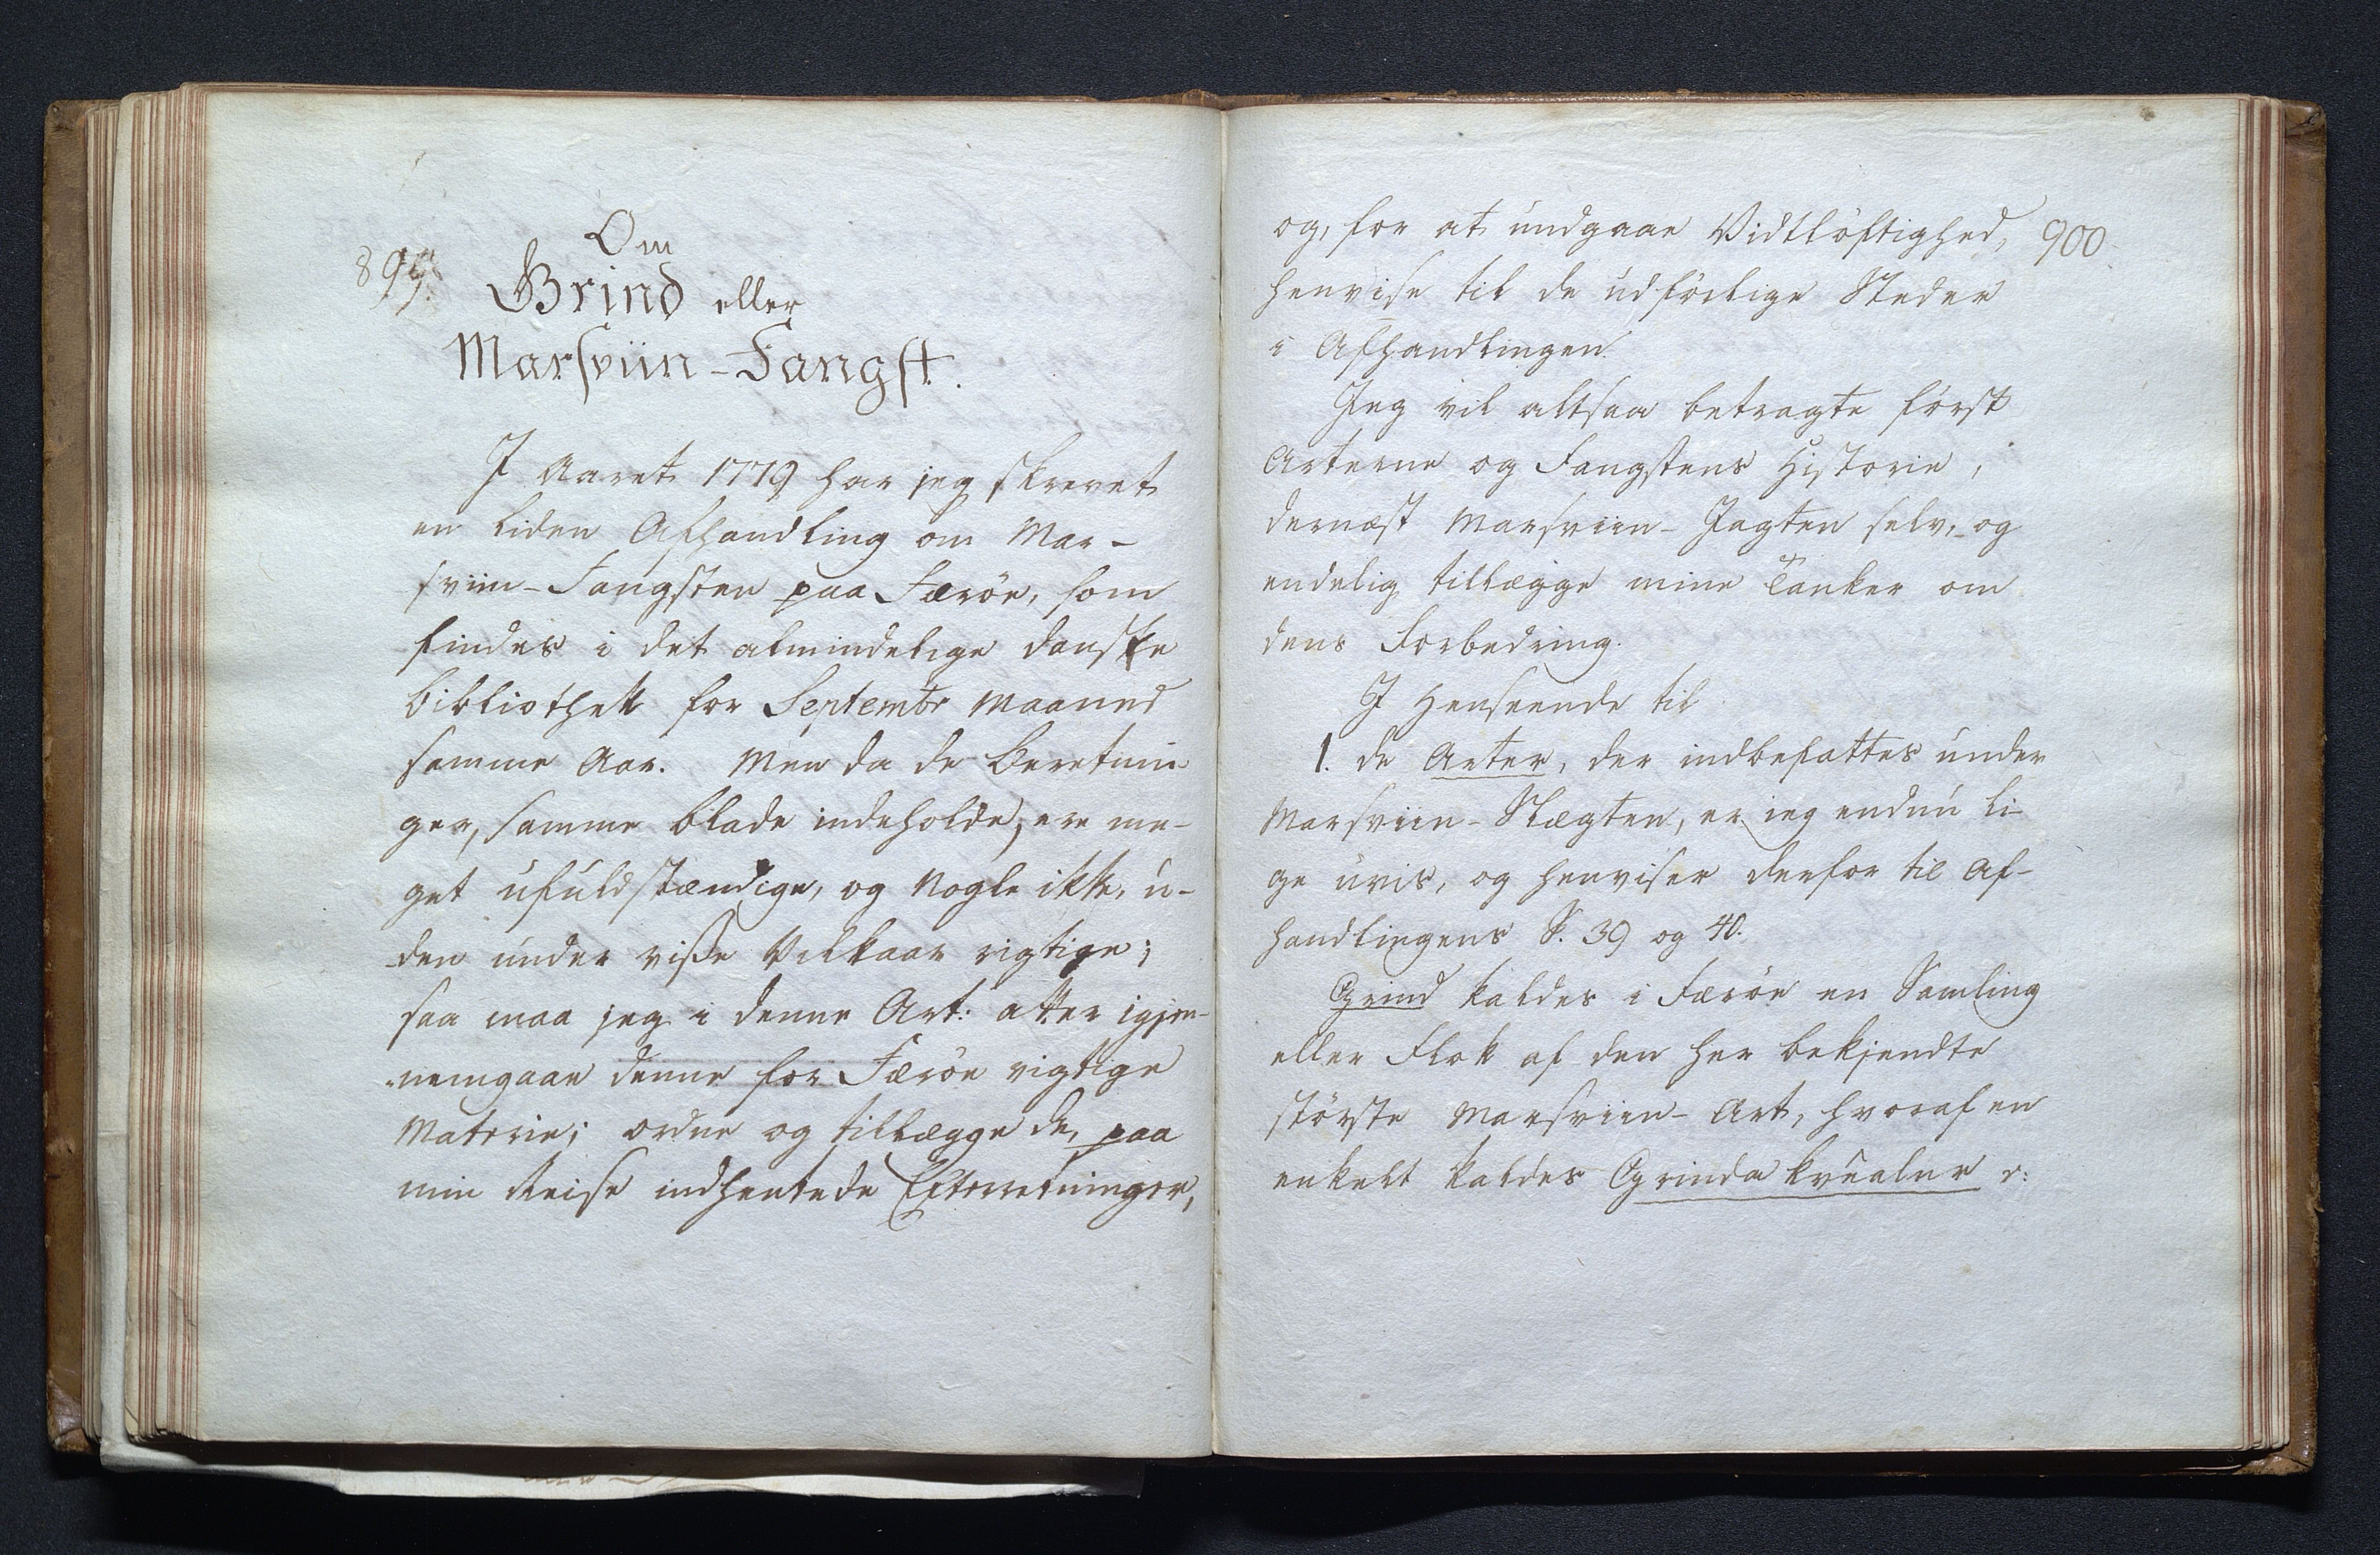 899.
Om
Grind eller
Marsviin-Fangst.
I Aaret 1779 har jeg skrevet
en liden Afhandling om Mar-
sviin-Fangsten paa Færöe, som
findes i det almindelige danske
Bibliothek for Septembr Maaned
samme Aar. Men da de Beretnin-
ger, samme Blade indeholde, ere me-
get ufuldstændige, og Nogle ikke, u-
den under visse Vilkaar rigtige;
saa maa jeg i denne Art: atter igjen-
nemgaae denne for Færöe vigtige
Materie; ordne og tillægge de, paa
min Reise indhentede Efterretninger,
900
og, for at undgaae Vidtlöftighed,
henvise til de udförlige Steder
i Afhandlingen.
Jeg vil altsaa betragte först
Arterne og Fangstens Historie;
dernæst Marsviin-Jagten selv, og
endelig tillægge mine Tanker om
dens Forbedring.
I Henseende til
1. de Arter, der indbefattes under
Marsviin-Slægten, er jeg endnu li-
ge uvis, og henviser derfor til Af-
handlingens S. 39 og 40.
Grind kaldes i Færöe en Samling
eller Flok af den her bekjendte
störste Marsviin-Art, hvoraf en
enkelt kaldes Grindakvealur ɔ: